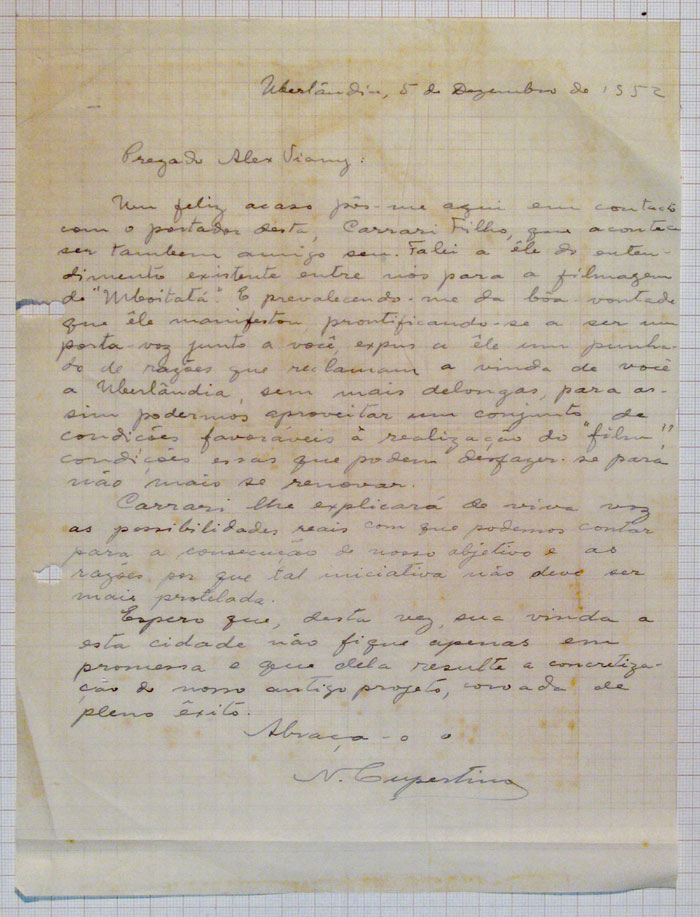 Uberlândia, 5 de Dezembro de 1952
Prezado Alex Viany:
Um feliz acaso pôs-me aqui em contacto
com o portador desta, Carrari Filho, que acontece
ser tambem amigo seu. Falei a êle do enten-
dimento existente entre nós para a filmagem
de "Mboitatá". E prevalecendo-me da bôa-vontade
que êle manifestou prontificando-se a ser um
porta-voz junto a você, expus a êle um punha-
do de razões que reclamam a vinda de você
a Uberlândia, sem mais delongas, para as-
sim podermos aproveitar um conjunto de
condições favoráveis à realização do "film",
condições essas que podem desfazer-se para
não mais se renovar.
Carrari lhe explicará de viva voz
as possibilidades reais com que podemos contar
para a consecução de nosso objetivo e as
razões por que tal iniciativa não deve ser
mais protelada.
Espero que, desta vez, sua vinda a
esta cidade não fique apenas em
promessa e que dela resulte a concretiza-
ção do nosso antigo projeto, coroada de
pleno êxito.
Abraça-o o
N. Cupertino